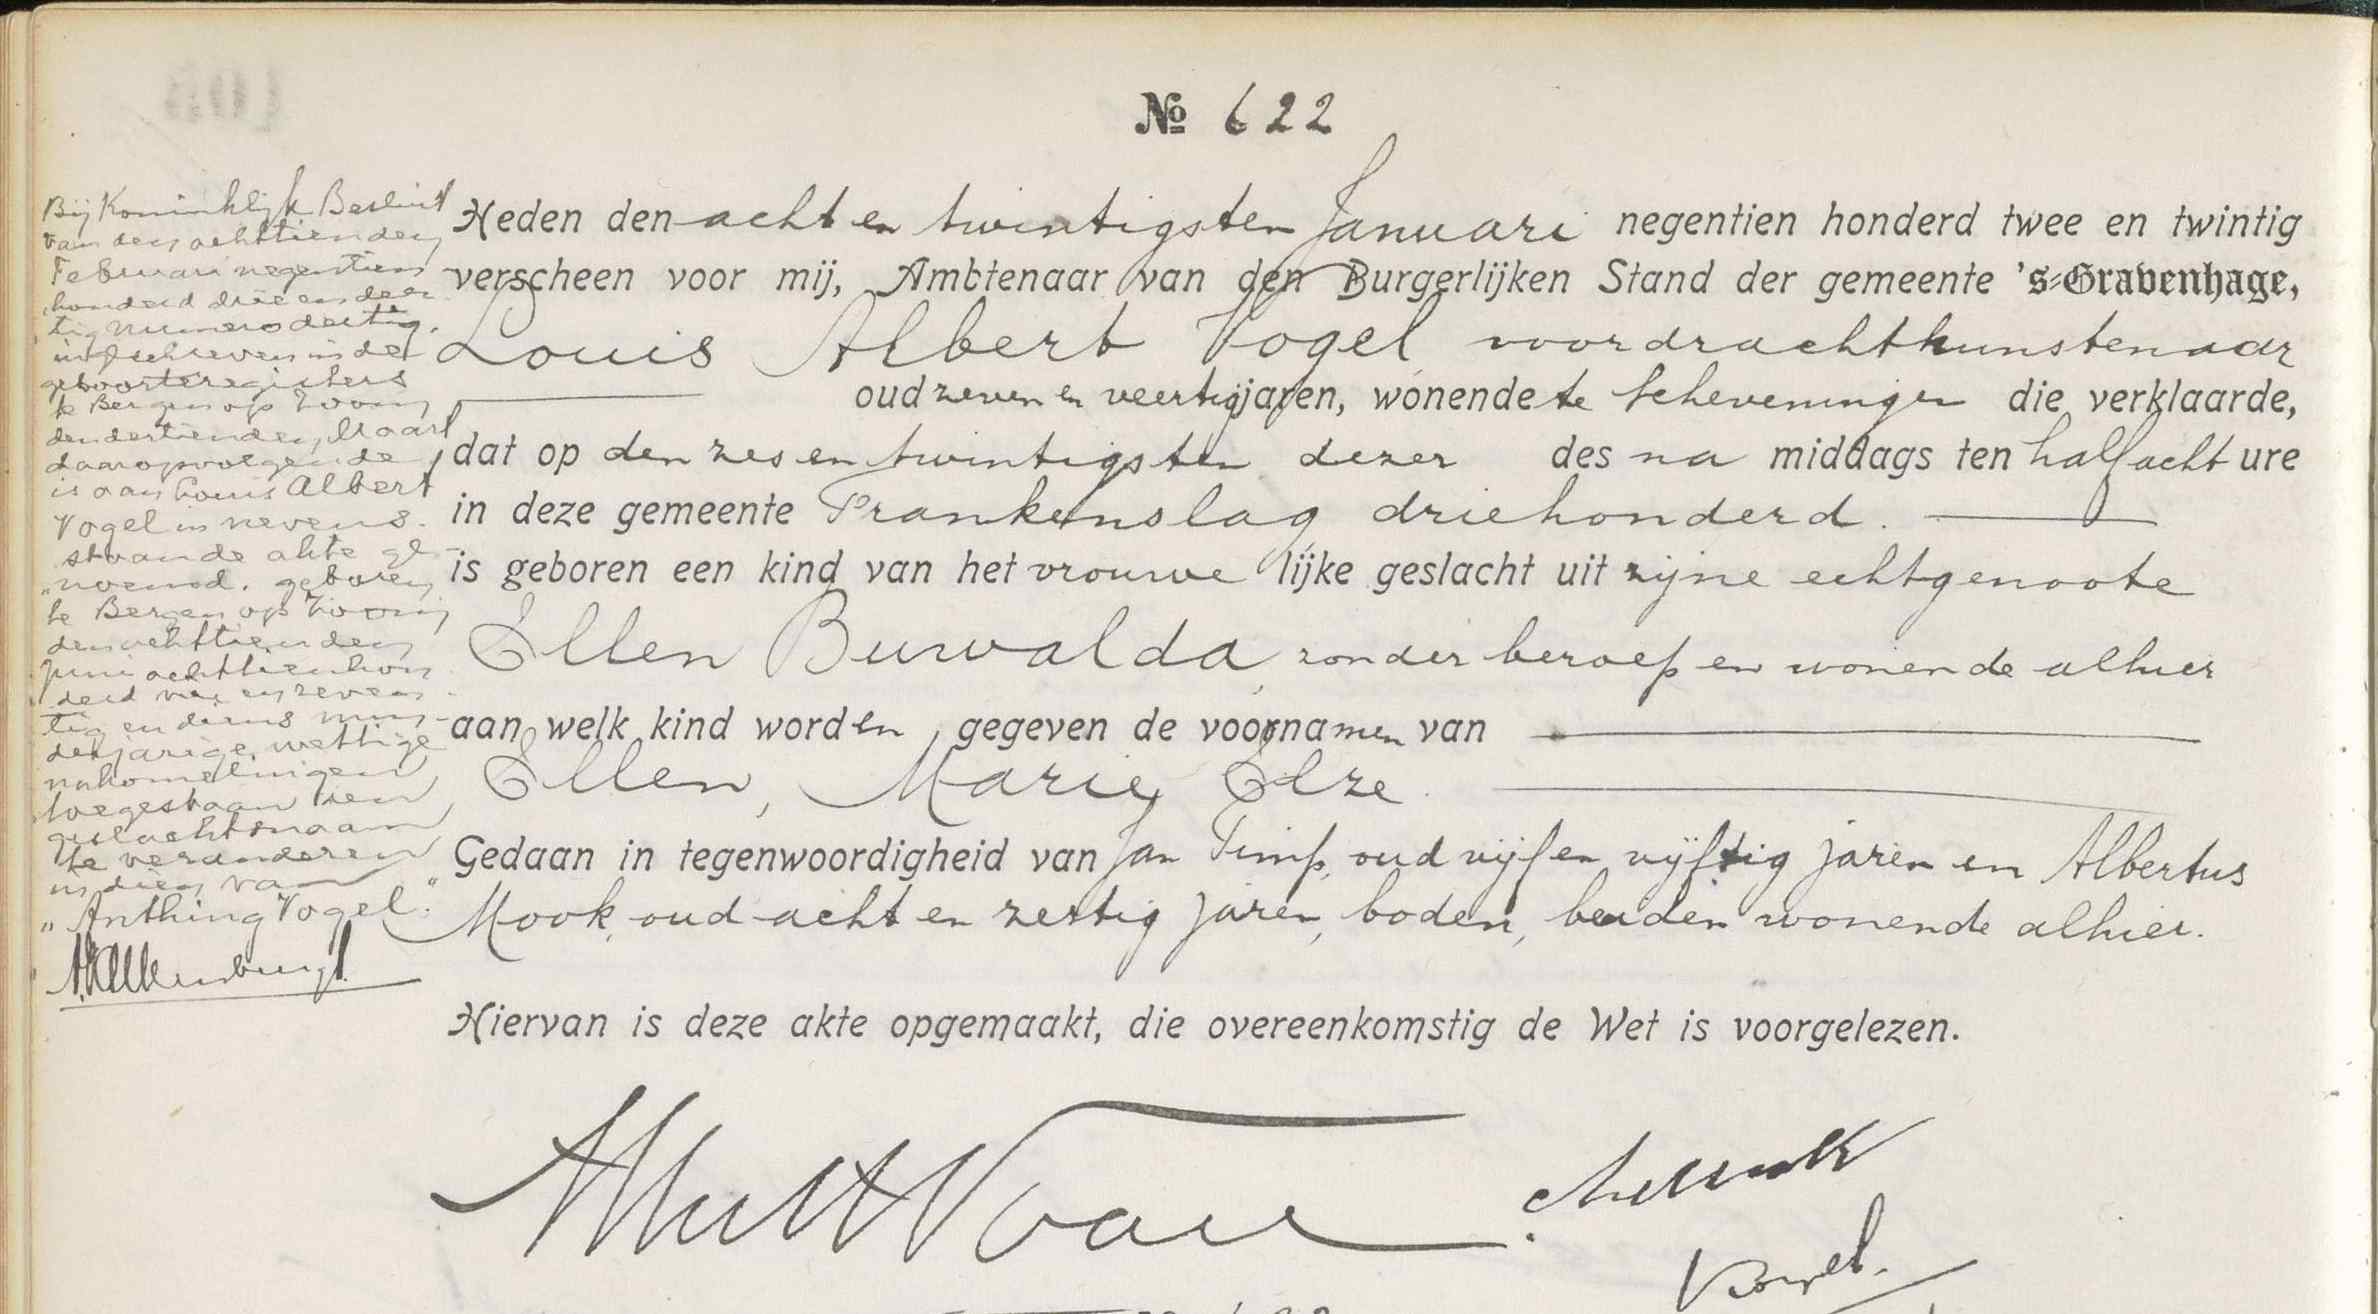 № 622
Bij Koninklijk Besluit
van den achttienden
Februari negentien
honderd drie en der
tig numero dertig,
ingeschreven in de
geboorteregisters
te Bergen op Zoom
den dertienden Maart
daaropvolgende,
is aan Louis Albert
Vogel in nevens-
staande akte ge-
noemd, geboren
te Bergen op Zoom
den achttienden
Juni achttienhon
derd vier en zeven
tig en diens min-
derjarige wettige
nakomelingen
toegestaan den
geslachtsnaam
te veranderen
in dien van
"Anthing Vogel".
Heden den acht en twintigsten Januari negentien honderd twee en twintig
verscheen voor mij, Ambtenaar van den Burgerlijken Stand der gemeente 's-Gravenhage,
Louis Albert Vogel voordrachtkunstenaar
oud zeven en veertig jaren, wonende te Scheveningen die verklaarde,
dat op den zes en twintigsten dezer des na middags ten half acht ure
in deze gemeente Frankenslag driehonderd.
is geboren een kind van het vrouwe lijke geslacht uit zijne echtgenoote
Ellen Buwalda, zonder beroep en wonende alhier
aan welk kind worden gegeven de voornamen van
Ellen, Marie, Elze.
Gedaan in tegenwoordigheid van Jan Timp, oud vijf en vijftig jaren en Albertus
Mook, oud acht en zestig jaren, boden, beiden wonende alhier.
Hiervan is deze akte opgemaakt, die overeenkomstig de Wet is voorgelezen.